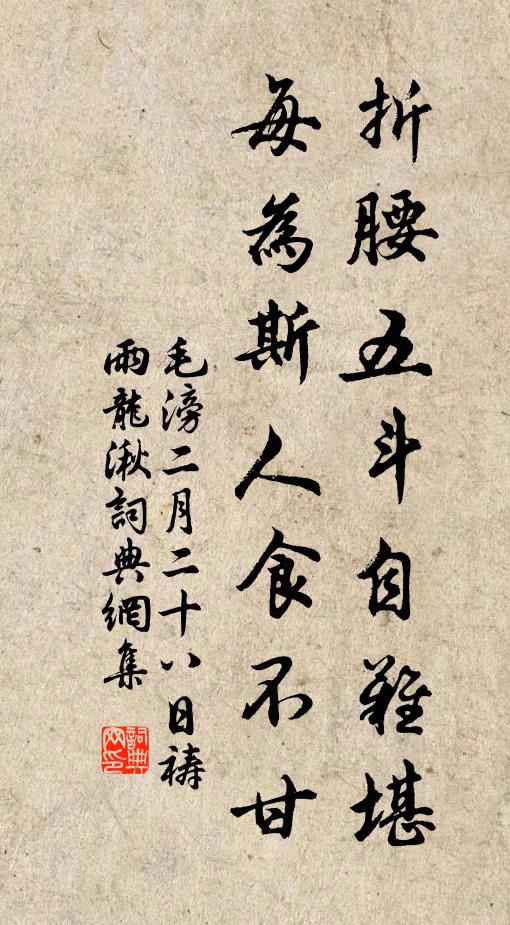 折腰五斗自難堪
每為斯人食不甘
毛滂二月二十八日祷
雨龍湫詞典網集
詞典
网印